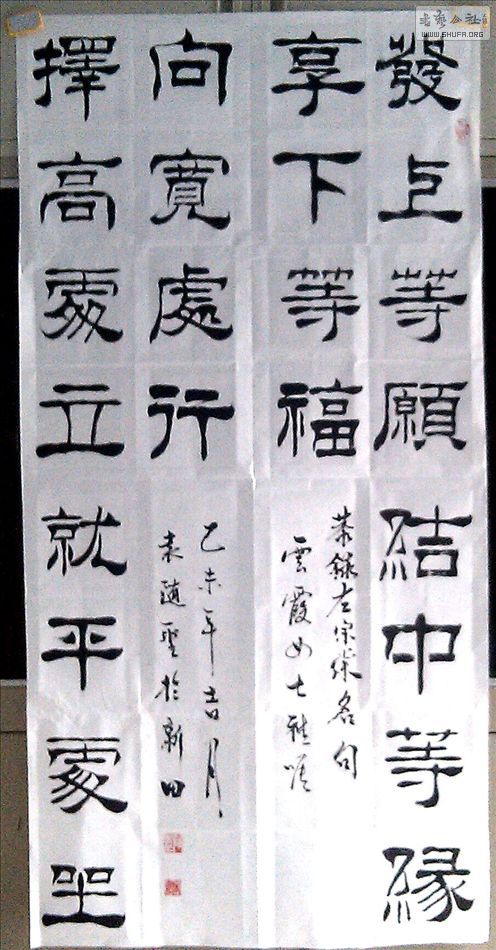 書藝公社
WWW.SHUFA.ORG
發上等願結中等緣
享下等福
恭錄左宗棠名句
雲霞女士雅
擇高處立就平處坐
向寬處行
乙未年吉月
袁隨聖於新田